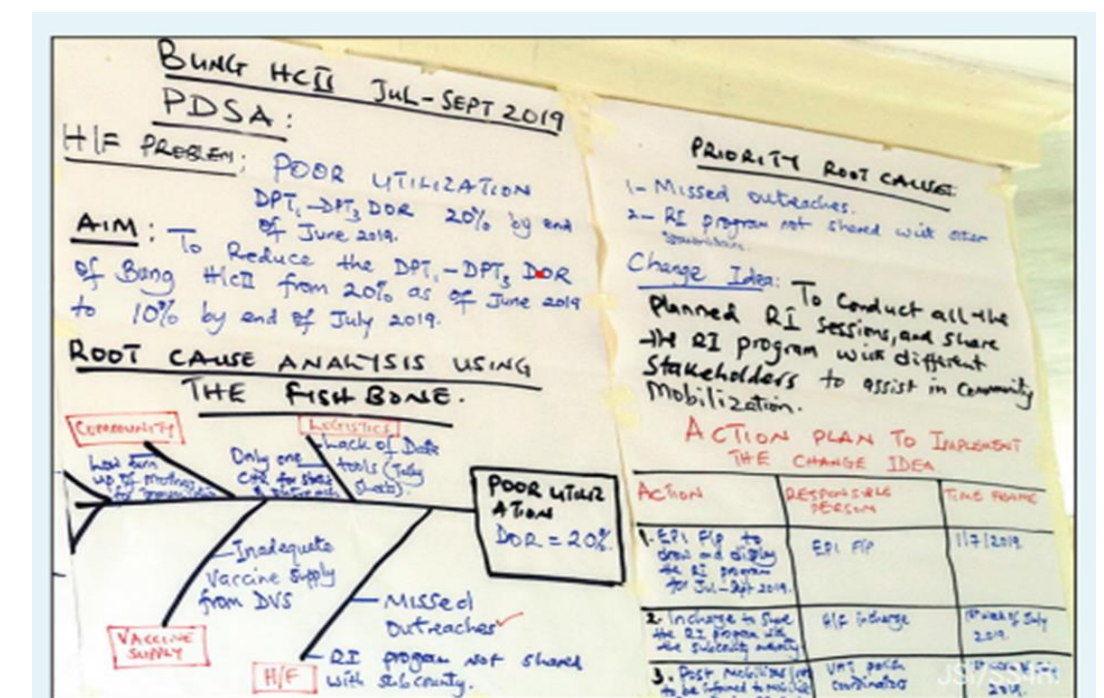 BUNG HCII JUL-SEPT 2019
PDSA:
H/F PROBLEM: POOR UTILIZATION
DPT1-DPT3 DOR 20% by end
of June 2019.
AIM: To Reduce the DPT1-DPT3 DOR
of Bung HCII from 20% as of June 2019
to 10% by end of July 2019.
ROOT CAUSE ANALYSIS USING
THE FISH BONE.
COMMUNITY
LOGISTICS
Low turn
up of mothers
for
Only one
for
Lack of Data
tools (Tally
sheets).
POOR UTILIZ
ATION
DOR = 20%.
Inadequate
Vaccine supply
from DVS
VACCINE
SUPPLY
- Missed
outreaches
- RI program not shared
with subcounty.
H/F
PRIORITY ROOT CAUSE
1- Missed outreaches.
2- RI program not shared with other
Change Idea: To Conduct all the
Planned RI Sessions, and share
the RI program with different
Stakeholders to assist in Community
Mobilization.
ACTION PLAN TO IMPLEMENT
THE CHANGE IDEA
ACTION
RESPONSIBLE
PERSON
TIME FRAME
1. EPI F/P to
draw and display
the RI program
for Jul-Sept 2019.
EPI F/P
1/7/2019
2. Incharge to share
the RI program with
the subcounty
H/F incharge
1st week of July
2019.
3. Post
to be informed to
VHT
coordinator
JSI/SS4RI